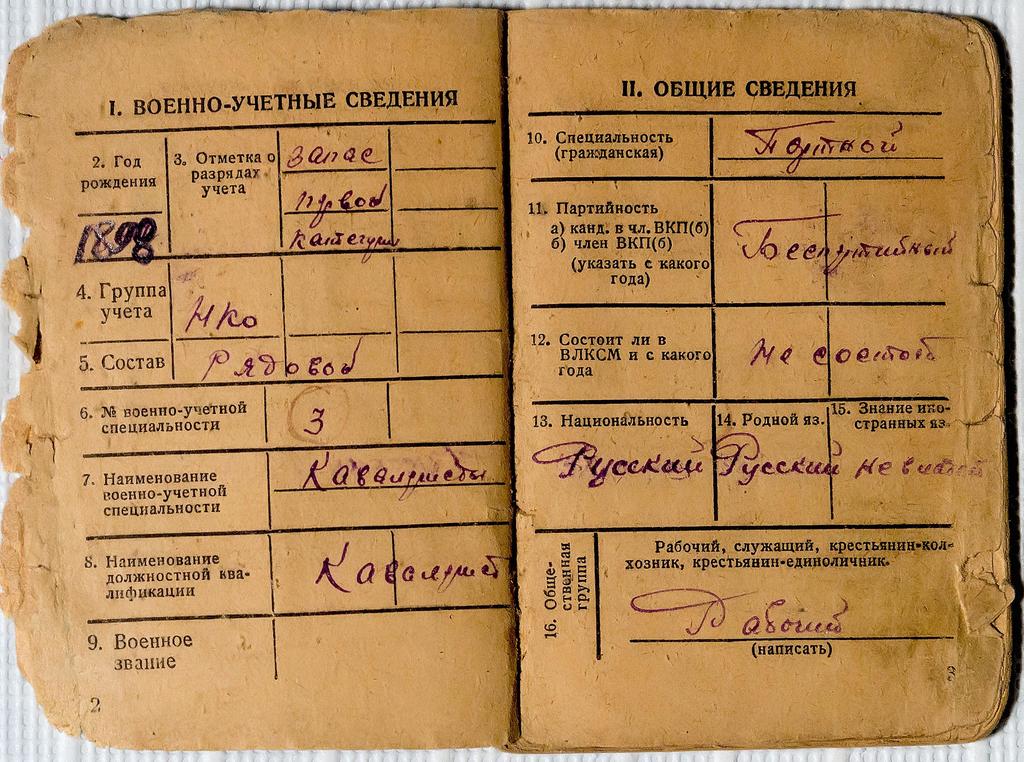 I. ВОЕННО-УЧЕТНЫЕ СВЕДЕНИЯ
2. Год
рождения
1898
3. Отметка о
разрядах
учета
Запас
первой
категории
4. Группа
учета
НКО
5. Состав
Рядовой
6. № военно-учетной
специальности
3
7. Наименование
военно-учетной
специальности
Кавалеристы
8. Наименование
должностной ква-
лификации
Кавалерист
9. Военное
звание
2
II. ОБЩИЕ СВЕДЕНИЯ
10. Специальность
(гражданская)
Портной
11. Партийность
а) канд. в чл. ВКП(б)
б) член ВКП(б)
(указать с какого
года)
Беспартийный
12. Состоит ли в
ВЛКСМ и с какого
года
Не состоит
13. Национальность
Русский
14. Родной яз.
Русский
15. Знание ино-
странных яз.
не владеет
16. Обще-
ственная
группа
Рабочий, служащий, крестьянин-кол-
хозник, крестьянин-единоличник.
Рабочий
(написать)